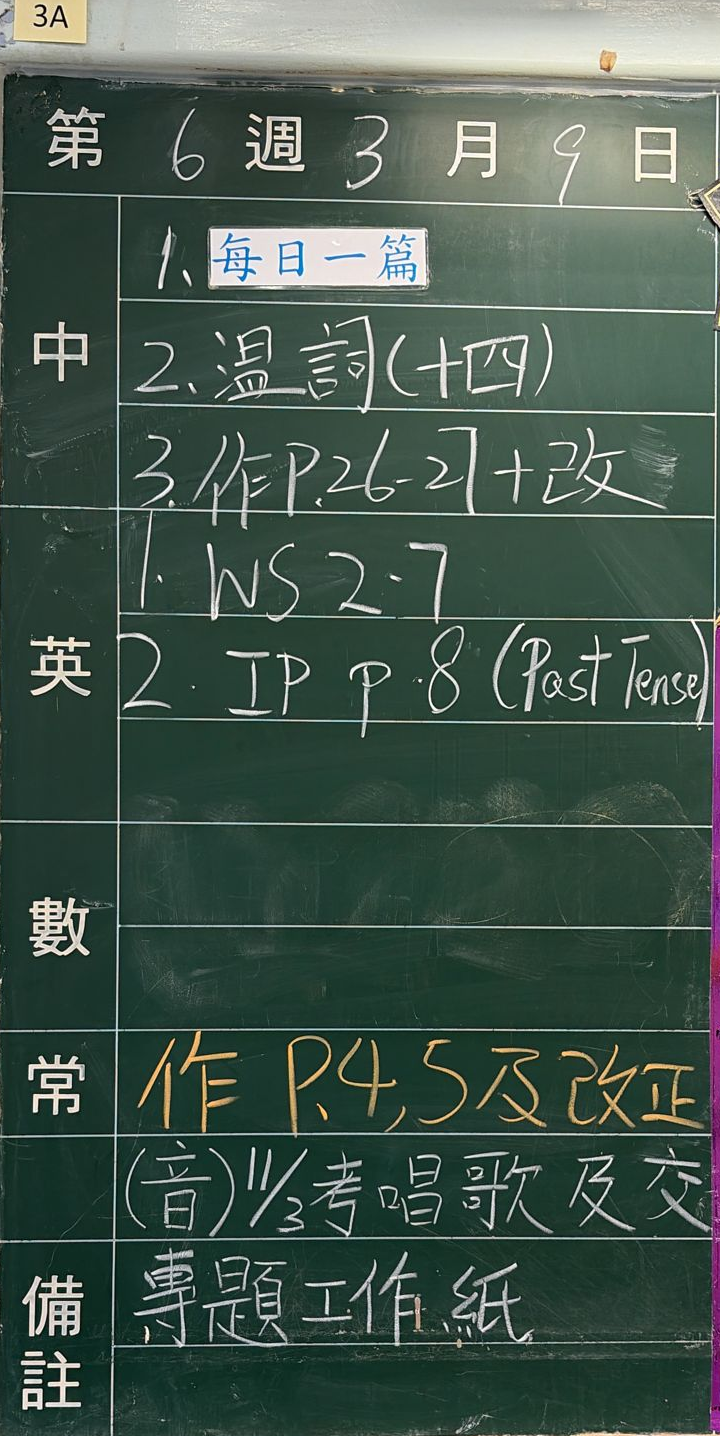 3A
第 6 週 3 月 9 日
中
1. 每日一篇
2. 溫詞(十四)
3. 作P.26-27+改
英
1. WS 2.7
2. IP p.8 (Past Tense)
數
常
作 P.4,5及改正
(音)11/3考唱歌及交
備註
專題工作紙